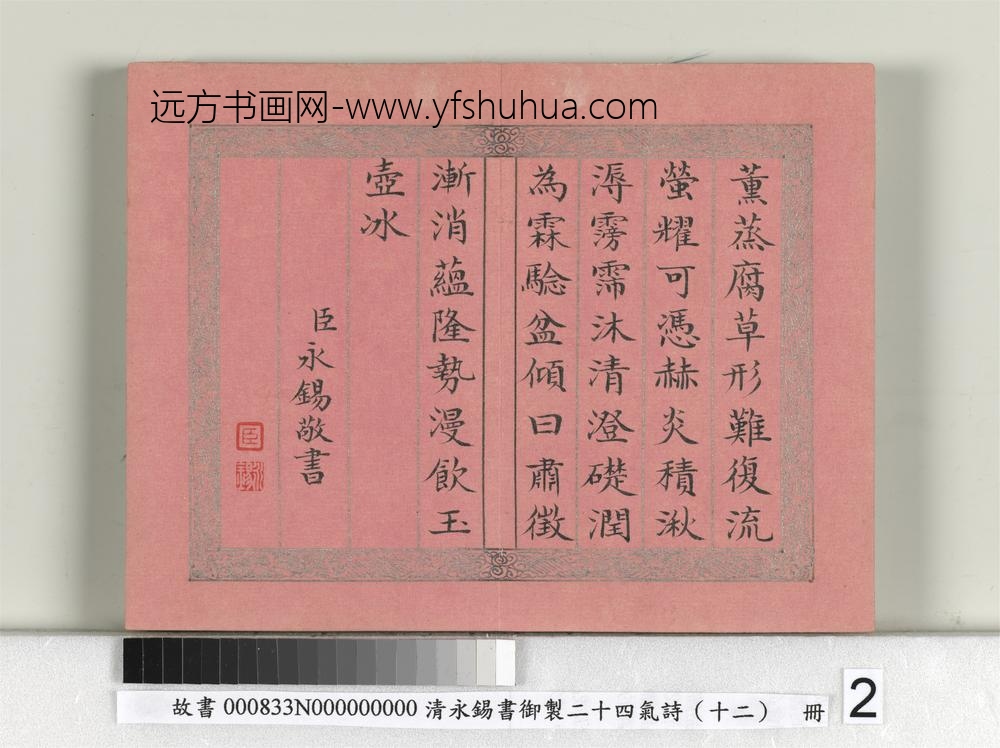 远方书画网-www.yfshuhua.com
薰蒸腐草形難復流
螢耀可憑赫炎積湫
溽霶霈沐清澄礎潤
為霖騐盆傾曰肅徵
漸消蘊隆勢漫飲玉
壺冰
臣永錫敬書
臣
永錫
故書 000833N000000000 清永錫書御製二十四氣詩（十二） 冊
2